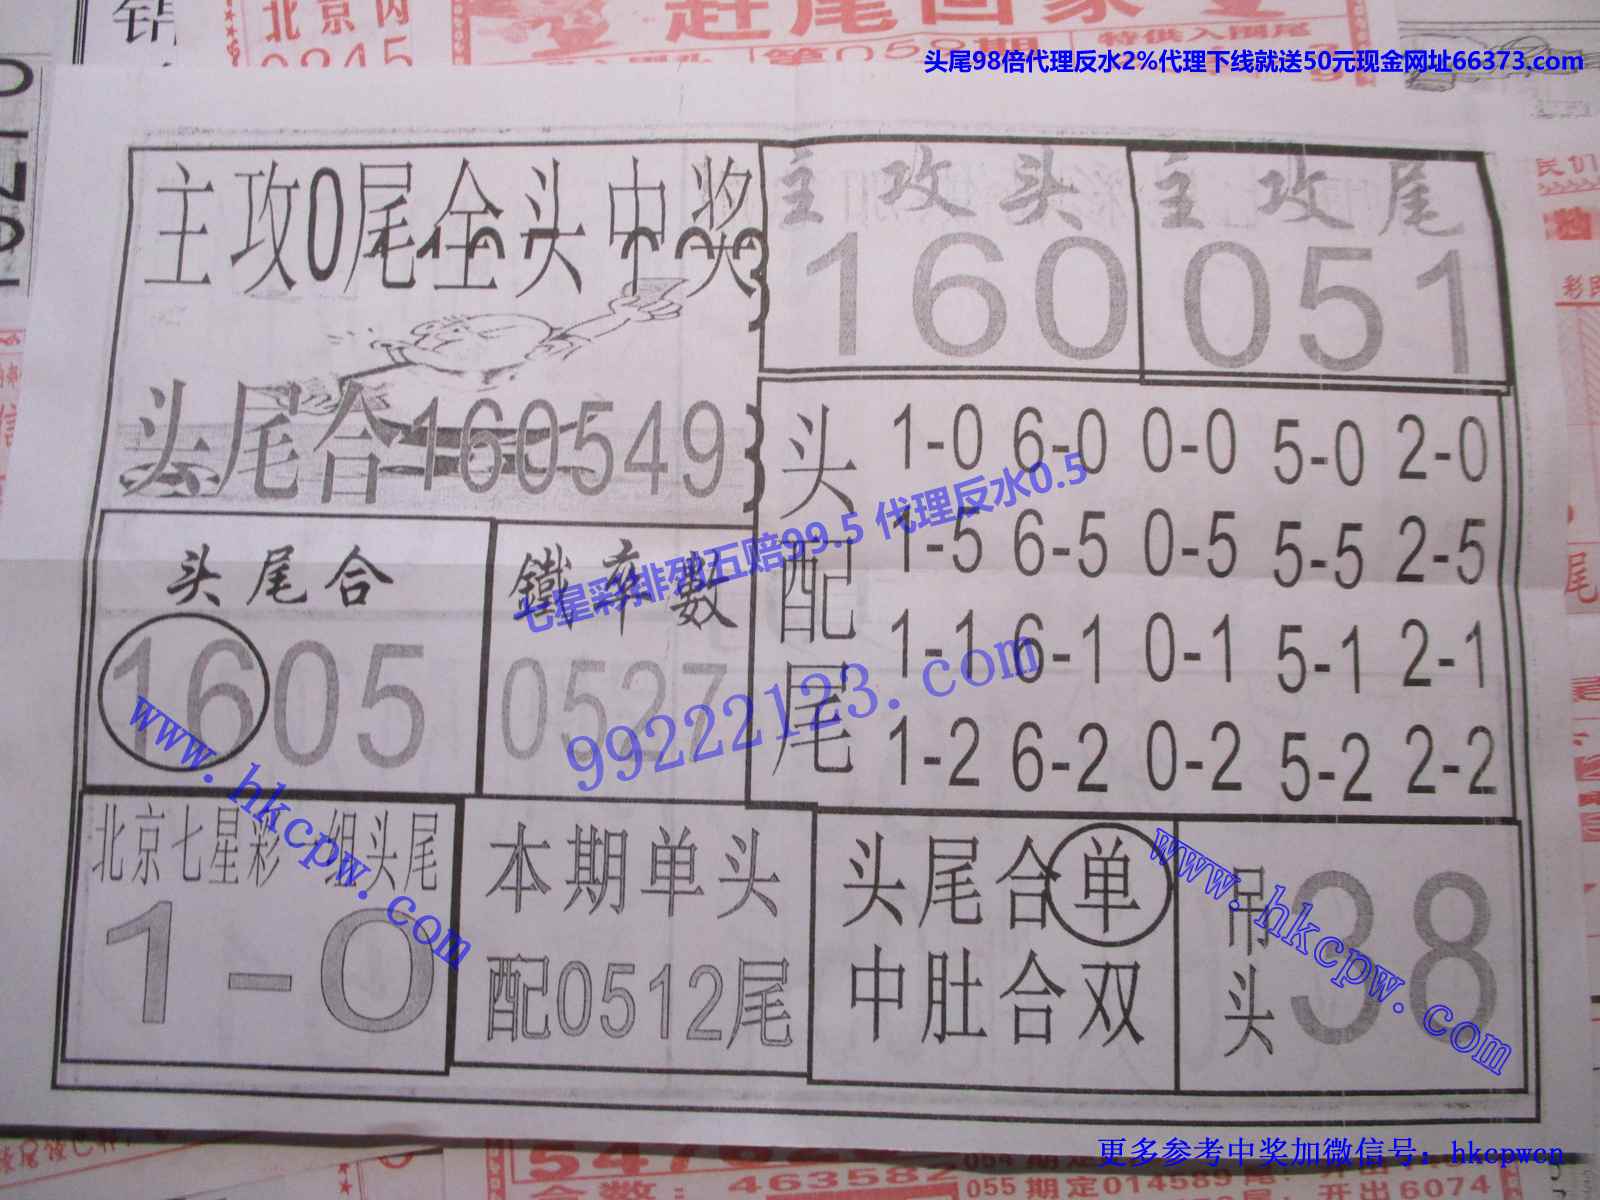 北京内
赶尾回家
特供入围尾
头尾98倍代理反水2%代理下线就送50元现金网址66373.com
主攻0尾全头中奖
主攻头
160
主攻尾
051
头尾合160549
头配尾
1-0 6-0 0-0 5-0 2-0
1-5 6-5 0-5 5-5 2-5
1-1 6-1 0-1 5-1 2-1
1-2 6-2 0-2 5-2 2-2
七星彩排列五赔99.5 代理反水0.5
99222123.com
头尾合
1605
鐵率數
0527
www.hkcpw.com
北京七星彩一组头尾
1-0
本期单头
配0512尾
头尾合单
中肚合双
吊头
38
www.hkcpw.com
更多参考中奖加微信号：hkcpwcn
463582
055期定014589尾
开出6074